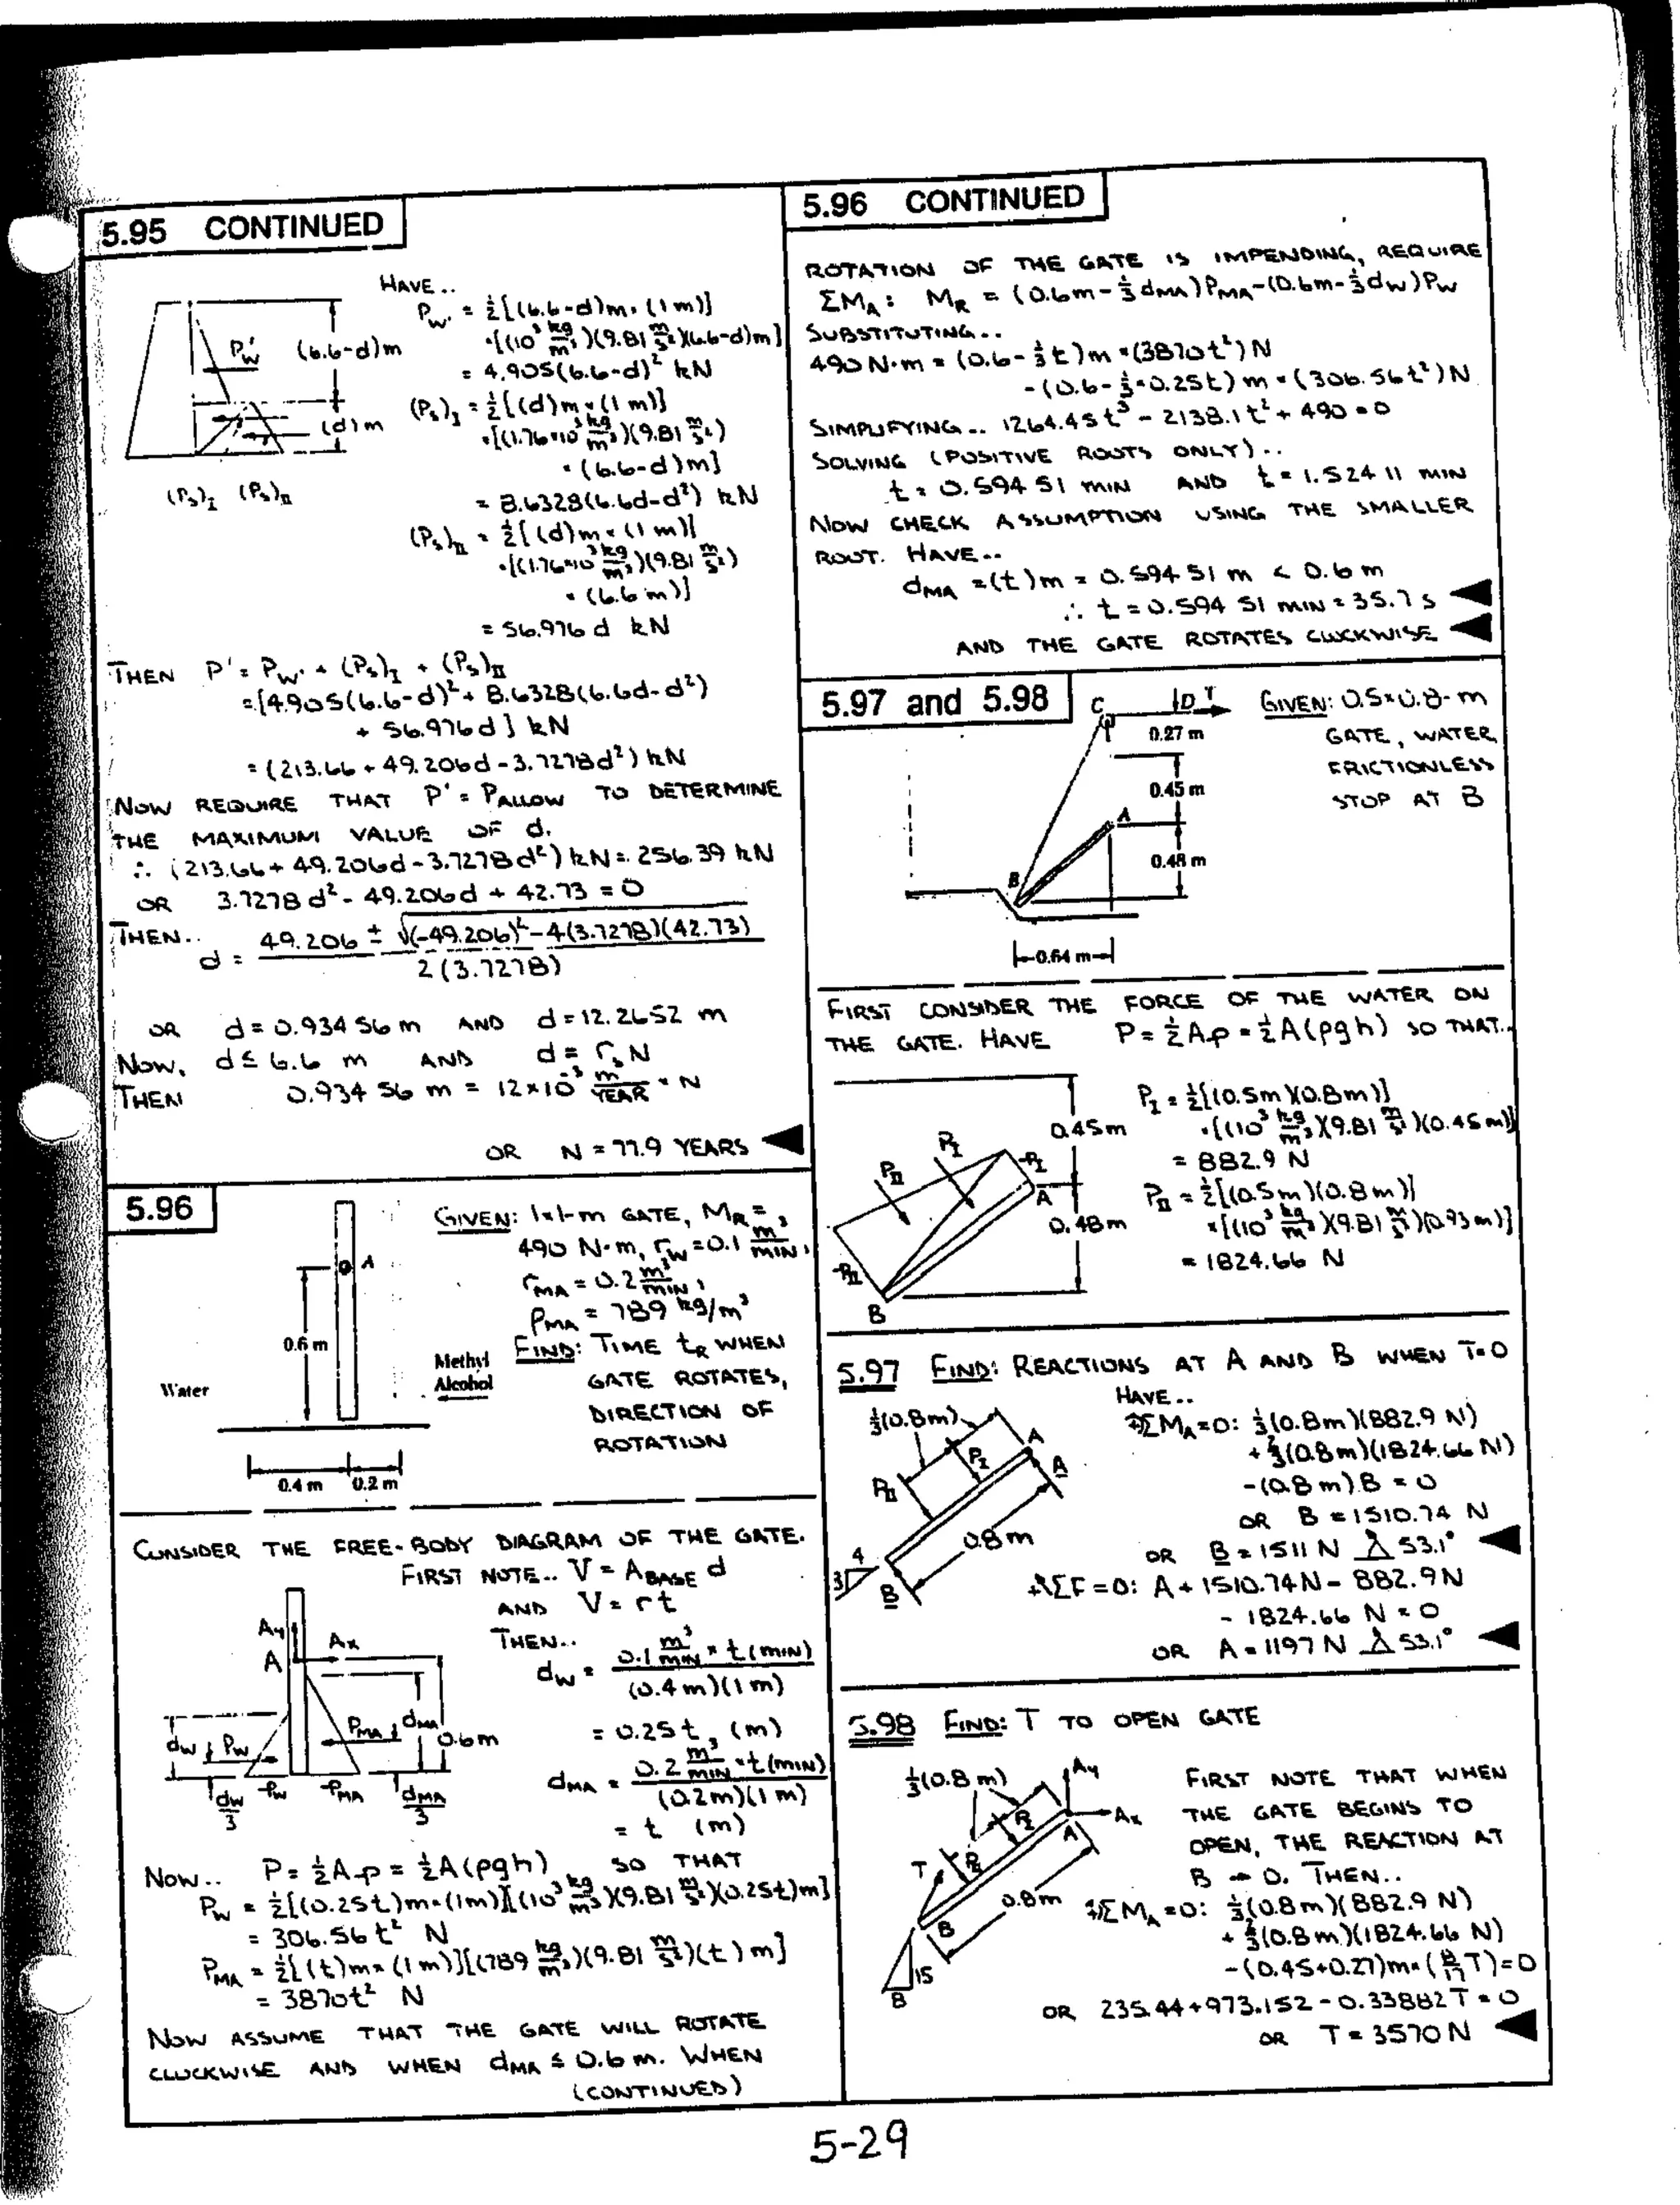 5.95 CONTINUED
HAVE..
Pw' = ½[(6.6-d)m × (1 m)]
·[(10³ kg/m³)(9.81 m/s²)(6.6-d)m]
= 4.905(6.6-d)² kN
(Ps)I = ½[(d)m × (1 m)]
×[(1.76×10³ kg/m³)(9.81 m/s²)
× (6.6-d)m]
= 8.6328(6.6d-d²) kN
(Ps)II = ½[(d)m × (1 m)]
×[(1.76×10³ kg/m³)(9.81 m/s²)
× (6.6 m)]
= 56.976 d kN
Pw'
(6.6-d)m
(d)m
(Ps)I (Ps)II
THEN P' = Pw' + (Ps)I + (Ps)II
= [4.905(6.6-d)² + 8.6328(6.6d-d²)
+ 56.976d] kN
= (213.66 + 49.206d - 3.7278d²) kN
NOW REQUIRE THAT P' = PALLOW TO DETERMINE
THE MAXIMUM VALUE OF d.
∴ (213.66 + 49.206d - 3.7278d²) kN = 256.39 kN
OR 3.7278 d² - 49.206d + 42.73 = 0
THEN.. d = 49.206 ± √((-49.206)² - 4(3.7278)(42.73)) / 2(3.7278)
OR d = 0.934 56 m AND d = 12.2652 m
NOW, d ≤ 6.6 m AND d = rs N
THEN 0.934 56 m = 12×10⁻³ m/YEAR × N
OR N = 77.9 YEARS ◄
5.96
GIVEN: 1×1-m GATE, MR =
490 N·m, rw = 0.1 m³/MIN,
rMA = 0.2 m³/MIN,
ρMA = 789 kg/m³
FIND: TIME tR WHEN
GATE ROTATES,
DIRECTION OF
ROTATION
A
0.6 m
Water
Methyl
Alcohol
0.4 m 0.2 m
CONSIDER THE FREE-BODY DIAGRAM OF THE GATE.
FIRST NOTE.. V = ABASE d
AND V = rt
THEN.. dw = 0.1 m³/MIN × t(MIN) / (0.4 m)(1 m)
= 0.25t (m)
dMA = 0.2 m³/MIN × t(MIN) / (0.2m)(1 m)
= t (m)
Ay
A Ax
dw Pw PMA dMA 0.6m
dw/3 Pw PMA dMA/3
NOW.. P = ½Ap = ½A(ρgh) SO THAT
Pw = ½[(0.25t)m×(1m)][(10³ kg/m³)(9.81 m/s²)(0.25t)m]
= 306.56 t² N
PMA = ½[(t)m × (1 m)][(789 kg/m³)(9.81 m/s²)(t)m]
= 3870t² N
NOW ASSUME THAT THE GATE WILL ROTATE
CLOCKWISE AND WHEN dMA ≤ 0.6 m. WHEN
(CONTINUED)
5.96 CONTINUED
ROTATION OF THE GATE IS IMPENDING, REQUIRE
ΣMA: MR = (0.6m - ⅓dMA)PMA - (0.6m - ⅓dw)Pw
SUBSTITUTING..
490 N·m = (0.6 - ⅓t)m × (3870t²) N
-(0.6 - ⅓×0.25t) m × (306.56t²) N
SIMPLIFYING.. 1264.45t³ - 2138.1t² + 490 = 0
SOLVING (POSITIVE ROOTS ONLY)..
t = 0.594 51 MIN AND t = 1.524 11 MIN
NOW CHECK ASSUMPTION USING THE SMALLER
ROOT. HAVE..
dMA = (t)m = 0.594 51 m < 0.6 m
∴ t = 0.594 51 MIN = 35.7 s ◄
AND THE GATE ROTATES CLOCKWISE ◄
5.97 and 5.98
GIVEN: 0.5×0.8-m
GATE, WATER,
FRICTIONLESS
STOP AT B
C D T
0.27 m
0.45 m
A
0.48 m
B
0.64 m
FIRST CONSIDER THE FORCE OF THE WATER ON
THE GATE. HAVE P = ½Ap = ½A(ρgh) SO THAT..
PI = ½[(0.5m)(0.8m)]
×[(10³ kg/m³)(9.81 m/s²)(0.45m)]
= 882.9 N
PII = ½[(0.5m)(0.8m)]
×[(10³ kg/m³)(9.81 m/s²)(0.93m)]
= 1824.66 N
0.45m
PI
PII
PI
A
0.48m
PII
B
5.97 FIND: REACTIONS AT A AND B WHEN T=0
HAVE..
ΣMA=0: ⅓(0.8m)(882.9 N)
+ ⅔(0.8m)(1824.66 N)
-(0.8 m)B = 0
OR B = 1510.74 N
OR B = 1511 N 53.1° ◄
ΣF=0: A + 1510.74N - 882.9N
- 1824.66 N = 0
OR A = 1197 N 53.1° ◄
⅓(0.8m)
PI
A
A
PII
0.8m
4
3
B
5.98 FIND: T TO OPEN GATE
FIRST NOTE THAT WHEN
THE GATE BEGINS TO
OPEN, THE REACTION AT
B → 0. THEN..
ΣMA=0: ⅓(0.8m)(882.9 N)
+ ⅔(0.8m)(1824.66 N)
-(0.45+0.27)m × (8/17 T) = 0
OR 235.44 + 973.152 - 0.33882T = 0
OR T = 3570 N ◄
⅓(0.8 m)
Ay
Ax
PI
A
T
PII
0.8m
B
15
8
5-29